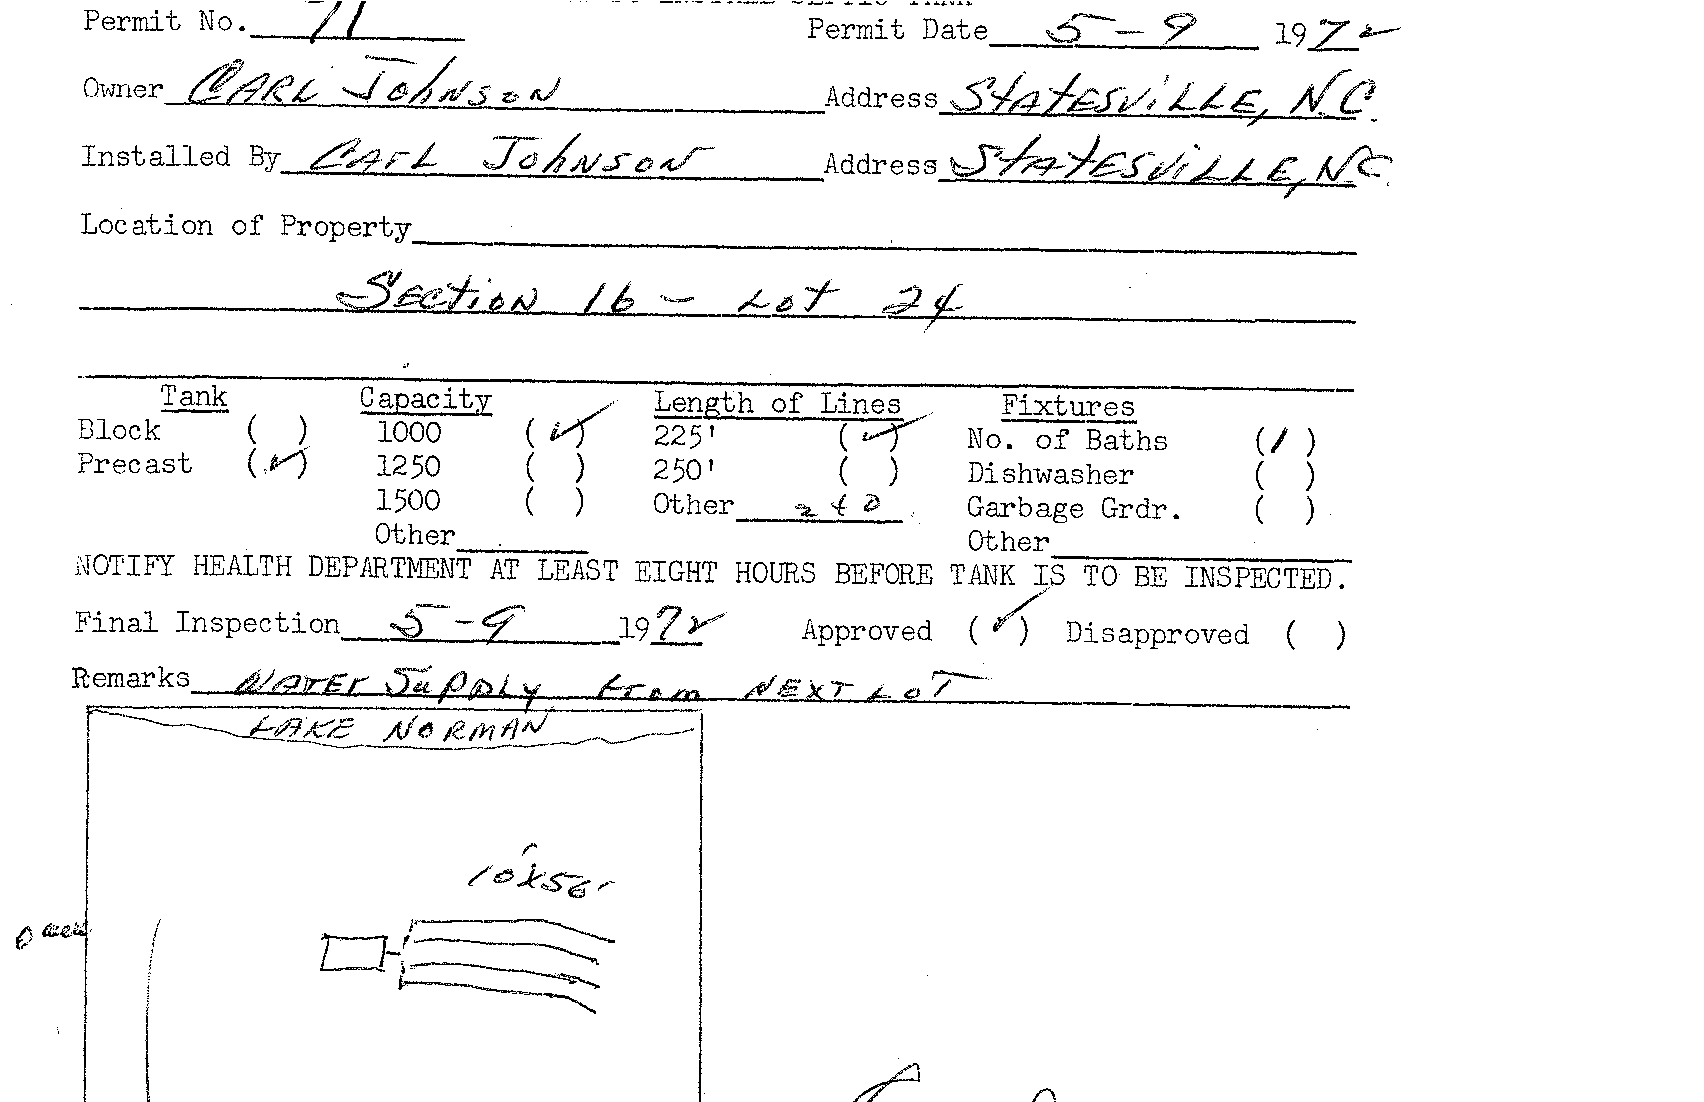 Permit No. 71 Permit Date 5-9 1972
Owner CARL JOHNSON Address STATESVILLE, N.C.
Installed By CARL JOHNSON Address STATESVILLE, N.C.
Location of Property
SECTION 16 - LOT 24
Tank Capacity Length of Lines Fixtures
Block ( ) 1000 (✓) 225' (✓) No. of Baths (1)
Precast (✓) 1250 ( ) 250' ( ) Dishwasher ( )
1500 ( ) Other 240 Garbage Grdr. ( )
Other Other
NOTIFY HEALTH DEPARTMENT AT LEAST EIGHT HOURS BEFORE TANK IS TO BE INSPECTED.
Final Inspection 5-9 1972 Approved (✓) Disapproved ( )
Remarks WATER SUPPLY From NEXT LOT
LAKE NORMAN
10'X50'